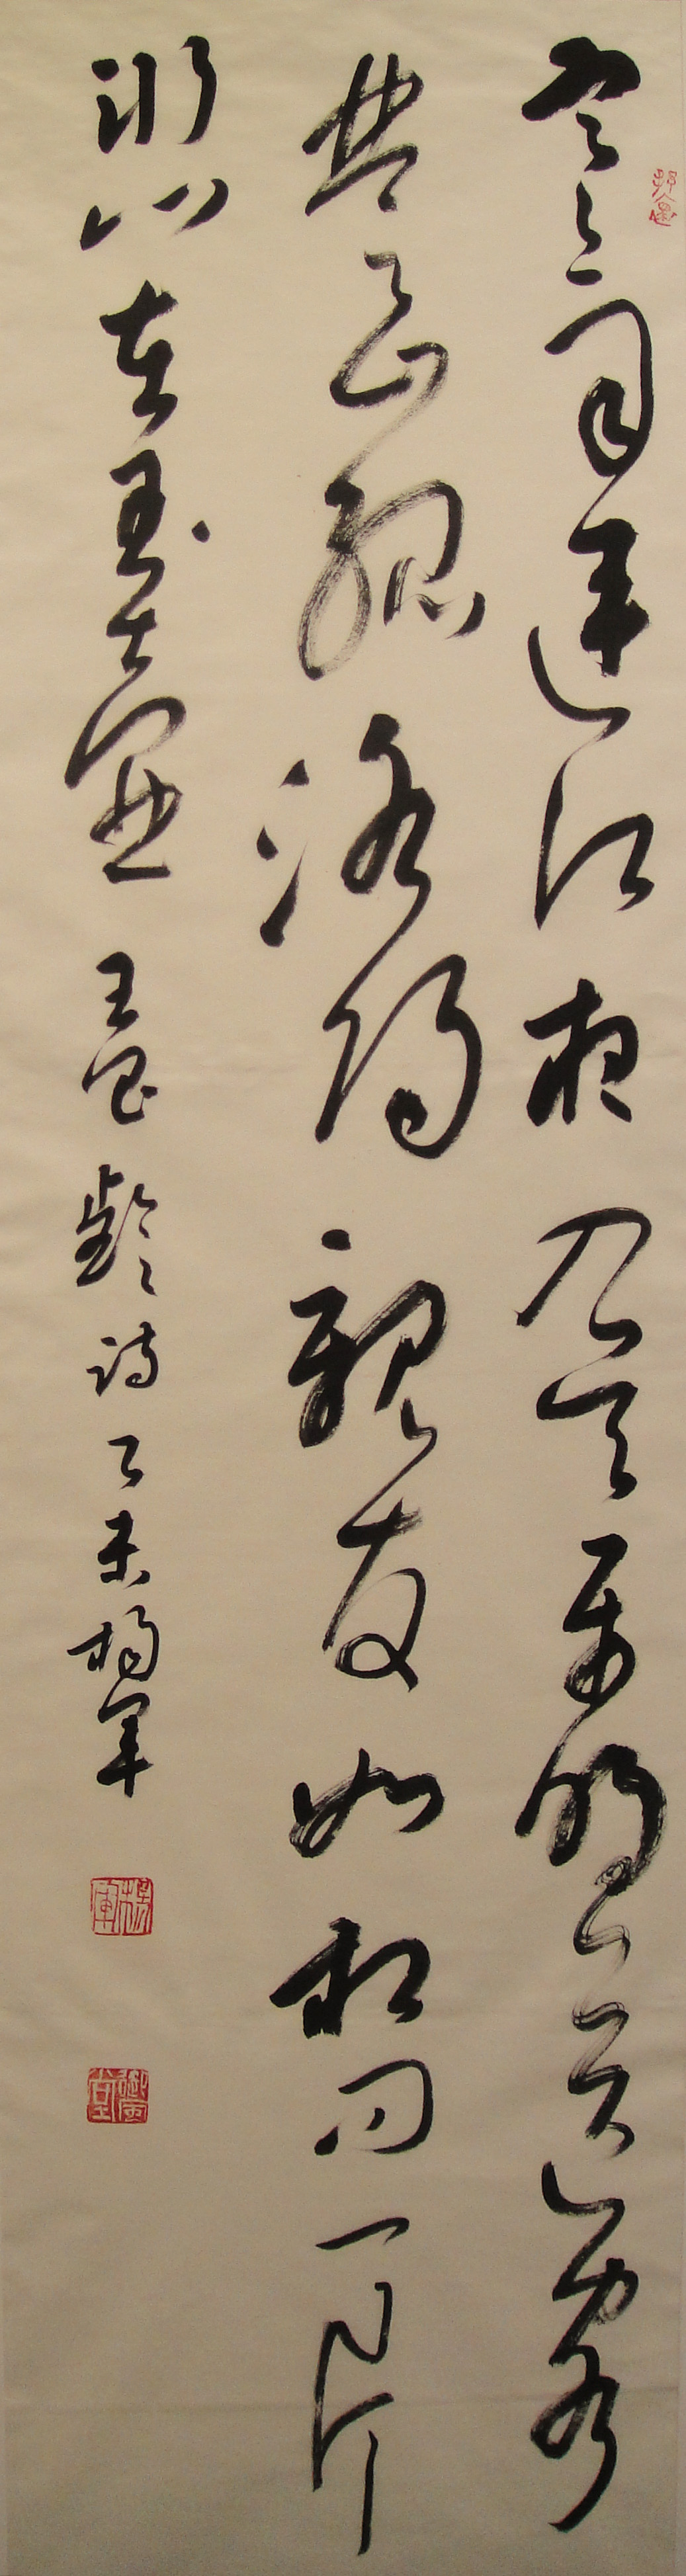 寒雨連江夜入吳平明送客
楚山孤洛陽親友如相問一片
冰心在玉壺 王昌齡詩 乙未 楊軍
楊軍